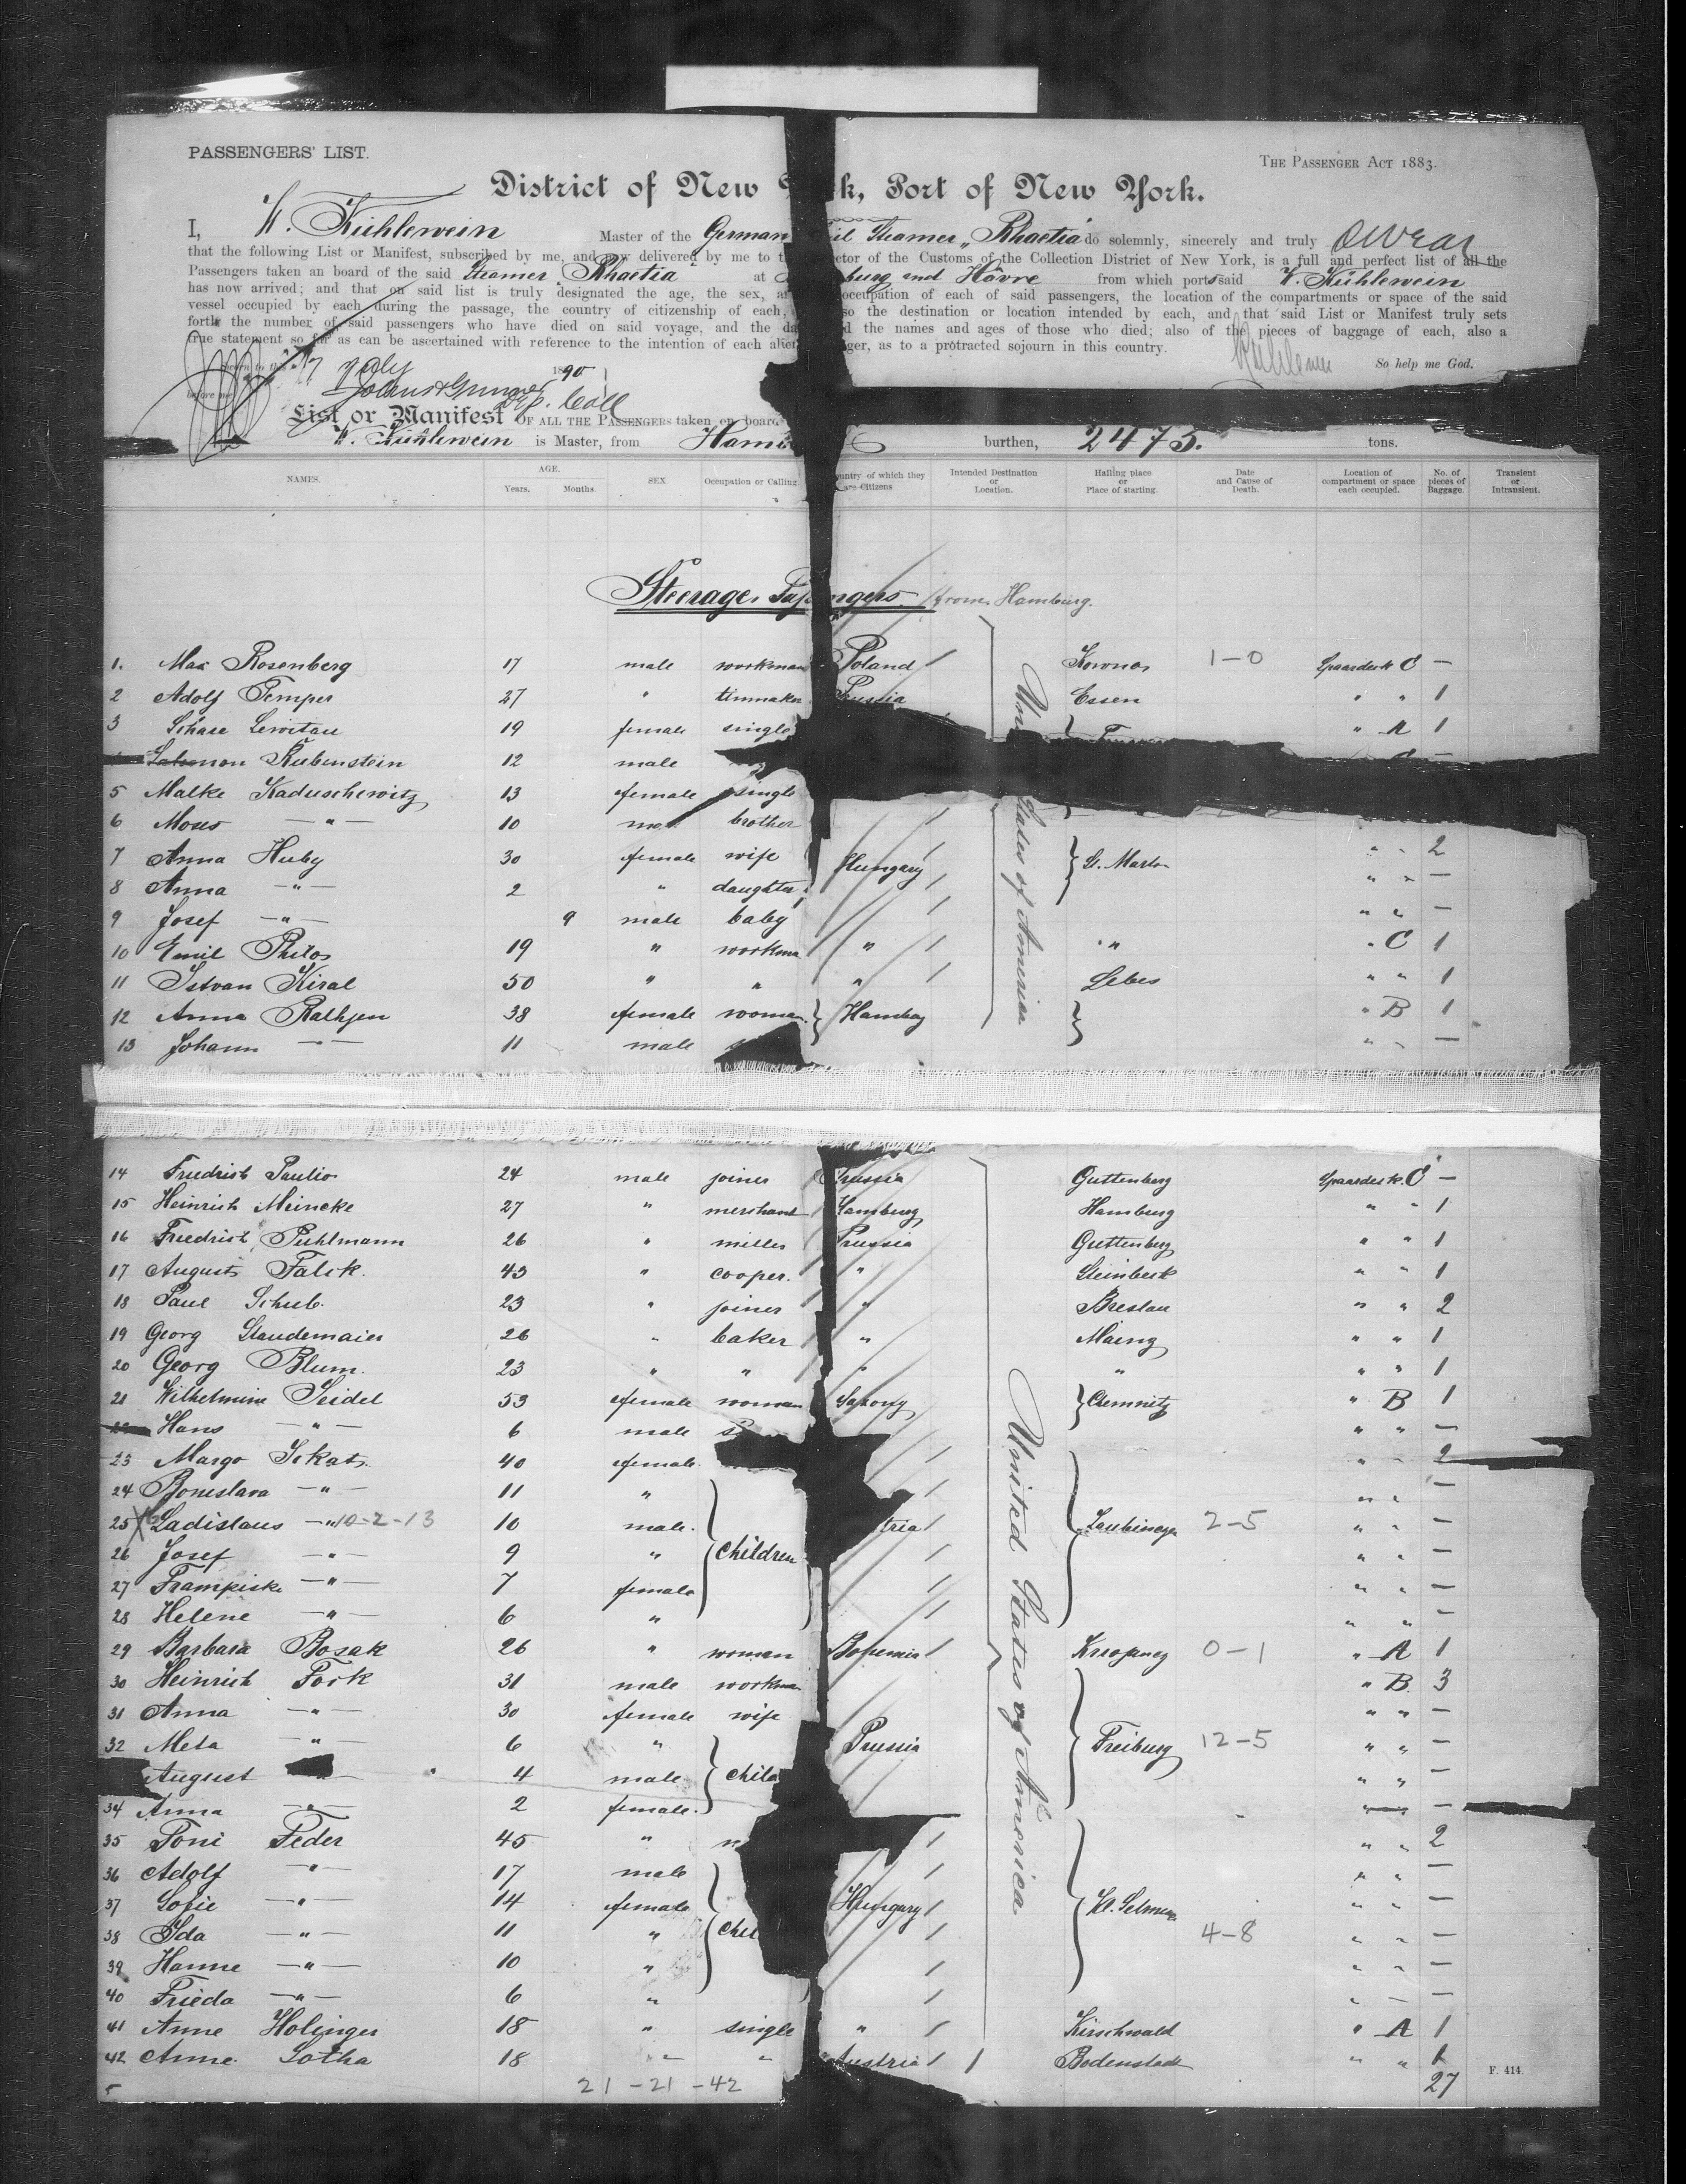 PASSENGERS' LIST.
THE PASSENGER ACT 1883.
District of New k, Port of New York.
I, H. Kühlewein Master of the German Steamer „Rhaetia" do solemnly, sincerely and truly swear
that the following List or Manifest, subscribed by me, and now delivered by me to the ctor of the Customs of the Collection District of New York, is a full and perfect list of all the
Passengers taken on board of the said Steamer „Rhaetia" at burg and Hâvre from which ports said Kühlewein
has now arrived; and that on said list is truly designated the age, the sex, occupation of each of said passengers, the location of the compartments or space of the said
vessel occupied by each during the passage, the country of citizenship of each, so the destination or location intended by each, and that said List or Manifest truly sets
forth the number of said passengers who have died on said voyage, and the the names and ages of those who died; also of the pieces of baggage of each, also a
true statement so far as can be ascertained with reference to the intention of each alien ger, as to a protracted sojourn in this country.
So help me God.
17 July 1890
before me
Dep. Coll
List or Manifest OF ALL THE PASSENGERS taken on board
Kühlewein is Master, from Hamb burthen, 2475. tons.
NAMES. AGE. Years. Months. SEX. Occupation or Calling Country of which they are Citizens Intended Destination or Location. Hailing place or Place of starting. Date and Cause of Death. Location of compartment or space each occupied. No. of pieces of Baggage. Transient or Intransient.
Steerage Passengers from Hamburg.
United States of America
1. Max Rosenberg 17 male workman Poland Kowno 1-0 Spaardeck C —
2 Adolf Temper 27 " Prussia Essen " " 1
3 Schase Lewitau 19 female single " A 1
Salomon Rubenstein 12 male
5 Malke Kaduschewitz 13 female single
6 Moses —"— 10 brother
7 Anna Huby 30 female wife Hungary St. Marton " " 2
8 Anna —"— 2 " daughter " " —
9 Josef —"— 9 male baby " " —
10 Emil Philos 19 " workman " " " C 1
11 Istvan Kiral 50 " " " Lebes " " 1
12 Anna Rathjen 38 female woman Hamburg " B 1
13 Johann —"— 11 male " " —
14 Friedrich Paulio 24 male joiner Prussia Guttenberg Spaardeck C —
15 Heinrich Meincke 27 " merchant Hamburg Hamburg " " 1
16 Friedrich Puhlmann 26 " miller Prussia Guttenberg " " 1
17 August Falck 43 " cooper. " Steinbeck " " 1
18 Paul Schub. 23 " joiner " Breslau " " 2
19 Georg Staudemaier 26 " baker " Mainz " " 1
20 Georg Blum. 23 " " " " " " 1
21 Wilhelmine Seidel 53 female woman Saxony Chemnitz " B 1
Hans —"— 6 male " " —
23 Margo Sekat 40 female " " 2
24 Boneslava —"— 11 " " " —
25 Ladislaus —"— 10-2-13 10 male. children tria Laubinegn 2-5 " " —
26 Josef —"— 9 " " " —
27 Frampiske —"— 7 female " " —
28 Helene —"— 6 " " " —
29 Barbara Bosak 26 " woman Bohemia 0-1 " A 1
30 Heinrich Fock 31 male workman " B. 3
31 Anna —"— 30 female wife " " —
32 Meta —"— 6 " Prussia Freiburg 12-5 " " —
August 4 male child " " —
34 Anna —"— 2 female. —
35 Toni Feder 45 " " " 2
36 Adolf —"— 17 male " " —
37 Sofie —"— 14 female Hungary " " —
38 Ida —"— 11 " chil 4-8 " " —
39 Hanne —"— 10 " " " —
40 Frieda —"— 6 " " — —
41 Anne Holinger 18 " single " Kirschwald " A 1
42 Anne. Lotha 18 " " Austria Bodenstadt " " 1
United States of America
21-21-42
27
F. 414.